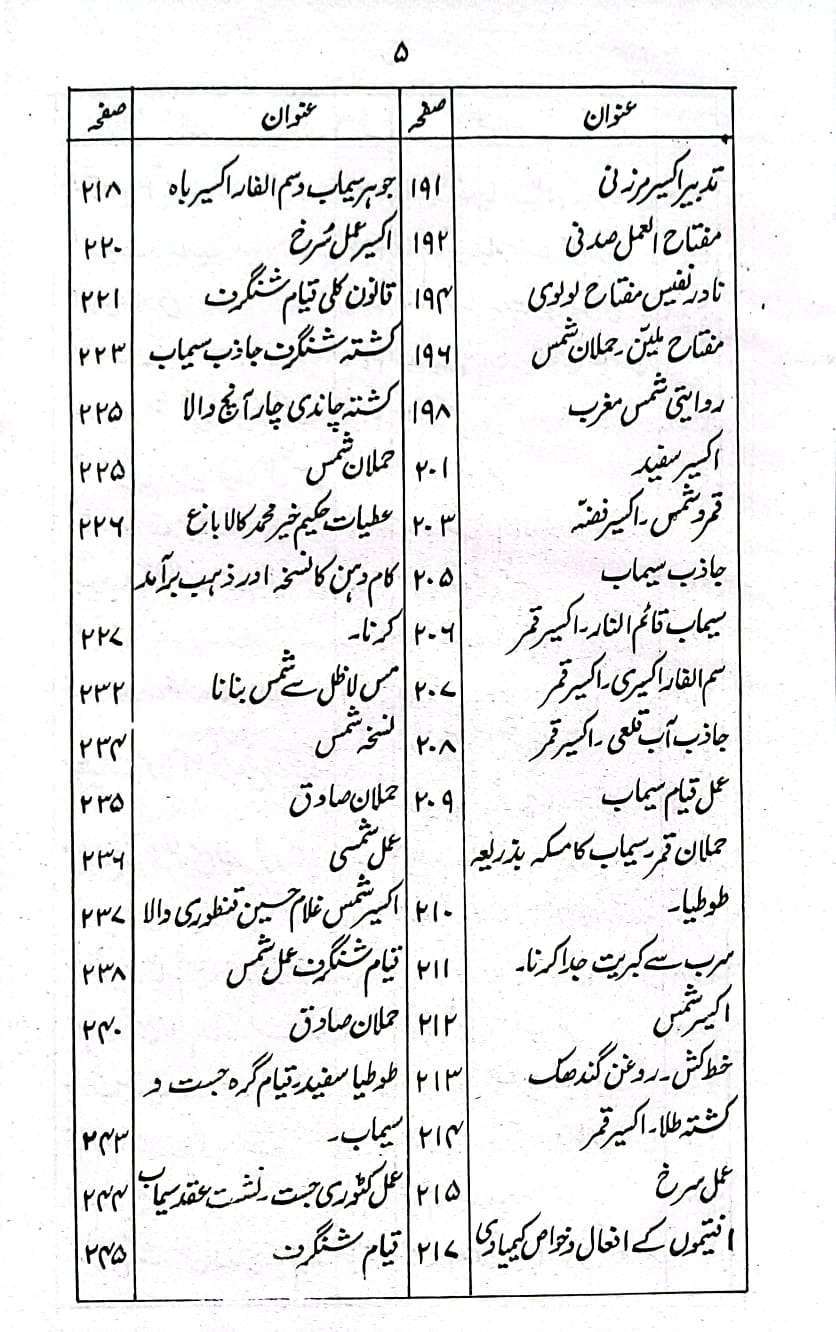 ۵
عنوان صفحہ
تدبیر اکسیر مزرنی ۱۹۱
مفتاح العمل صدفی ۱۹۲
نادر نفیس مفتاح لولوی ۱۹۴
مفتاح ملیّن ۔ حملان شمس ۱۹۶
روایتی شمس مغرب ۱۹۸
اکسیر سفید ۲۰۱
قمر و شمس ۔ اکسیر فضہ ۲۰۳
جاذب سیماب ۲۰۵
سیماب قائم النار ۔ اکسیر قمر ۲۰۶
سم الفار اکسیری ۔ اکسیر قمر ۲۰۷
جاذب آب قلعی ۔ اکسیر قمر ۲۰۸
عمل قیام سیماب ۲۰۹
حملان قمر ۔ سیماب کا مسکہ بذریعہ
طوطیا۔ ۲۱۰
سرب سے کبریت جدا کرنا۔ ۲۱۱
اکسیر شمس ۲۱۲
خط کش ۔ روغن گندھک ۲۱۳
کشتہ طلا ۔ اکسیر قمر ۲۱۴
عمل سرخ ۲۱۵
انتیموں کے افعال و خواص کیمیاوی ۲۱۷
عنوان صفحہ
جوہر سیماب و سم الفار اکسیر باہ ۲۱۸
اکسیر عمل سُرخ ۲۲۰
قانون کلی قیام شنگرف ۲۲۱
کشتہ شنگرف جاذب سیماب ۲۲۳
کشتہ چاندی چار آنچ والا ۲۲۵
حملان شمس ۲۲۵
عطیات حکیم خیر محمد کالا باغ ۲۲۶
کام دہن کا نسخہ اور ذہب برآمد
کرنا۔ ۲۲۷
مس لاظل سے شمس بنانا ۲۳۲
نسخہ شمس ۲۳۴
حملان صادق ۲۳۵
عمل شمسی ۲۳۶
اکسیر شمس غلام حسین قنطوری والا ۲۳۷
قیام شنگرف عمل شمس ۲۳۸
حملان صادق ۲۴۰
طوطیا سفید ۔ قیام گرہ جست و
سیماب۔ ۲۴۳
عمل کٹوری جست ۔ نشست عقد سیماب ۲۴۴
قیام شنگرف ۲۴۵